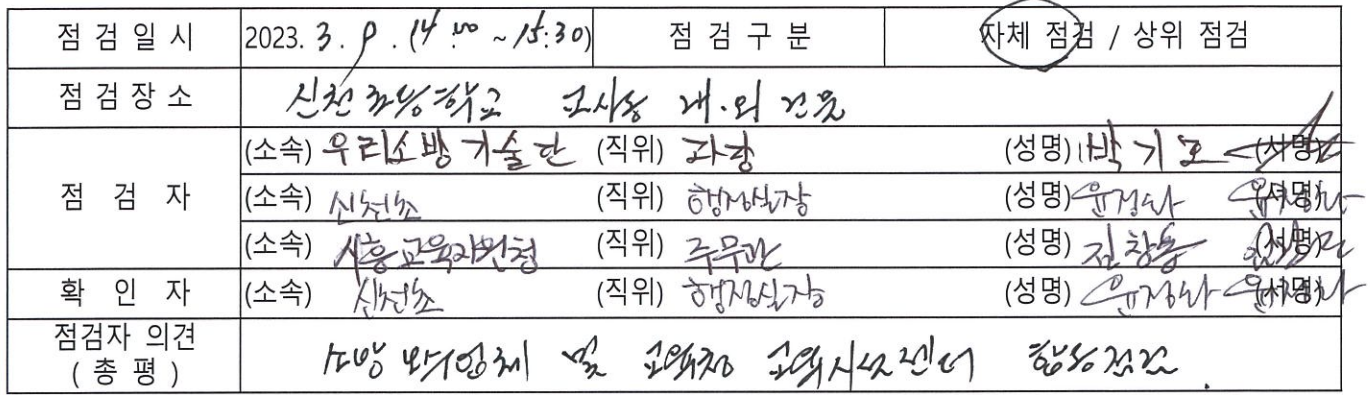 점 검 일 시 2023. 3. 9. (14:00 ~ 15:30) 점 검 구 분 자체 점검 / 상위 점검
점 검 장 소 신천초등학교 교사동 내·외 건물
(소속) 우리소방기술단 (직위) 과장 (성명) 박기호 (서명)
점 검 자 (소속) 신천초 (직위) 행정실장 (성명) 윤정나 (서명)
(소속) 시흥교육지원청 (직위) 주무관 (성명) 김창동 (서명)
확 인 자 (소속) 신천초 (직위) 행정실장 (성명) 윤정나 (서명)
점검자 의견
( 총 평 ) 소방 및 교육청 교육시설센터 합동점검.